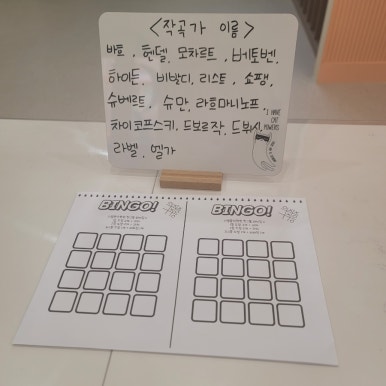 <작곡가 이름>
바흐, 헨델, 모차르트, 베토벤,
하이든, 비발디, 리스트, 쇼팽,
슈베르트, 슈만, 라흐마니노프,
차이코프스키, 드보르작, 드뷔시,
라벨, 엘가
I WANT
CAT
POWERS
BINGO!
BINGO!